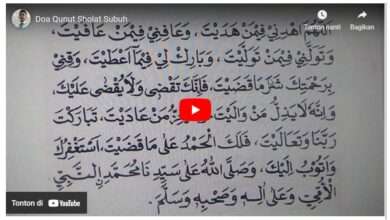 Doa Qunut Sholat Subuh
Tonton nanti
Bagikan
اَللّٰهُمَّ اهْدِنِيْ فِيْمَنْ هَدَيْتَ، وَعَافِنِيْ فِيْمَنْ عَافَيْتَ،
وَتَوَلَّنِيْ فِيْمَنْ تَوَلَّيْتَ، وَبَارِكْ لِيْ فِيْمَا اَعْطَيْتَ، وَقِنِيْ
بِرَحْمَتِكَ شَرَّمَا قَضَيْتَ، فَاِنَّكَ تَقْضِيْ وَلَا يُقْضٰى عَلَيْكَ،
وَاِنَّهُ لَا يَذِلُّ مَنْ وَالَيْتَ، مَنْ عَادَيْتَ، تَبَارَكْتَ
رَبَّنَا وَتَعَالَيْتَ، فَلَكَ الْحَمْدُ عَلٰى مَا قَضَيْتَ، اَسْتَغْفِرُكَ
وَاَتُوْبُ اِلَيْكَ، وَصَلَّى اللهُ عَلٰى سَيِّدِنَا مُحَمَّدٍ النَّبِيِّ
الْاُمِّيِّ وَعَلٰى اٰلِهٖ وَصَحْبِهٖ وَسَلَّمَ.
Tonton di YouTube